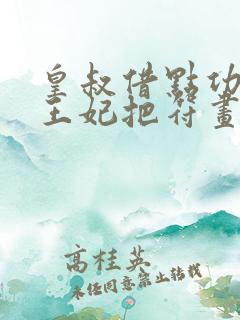 皇叔借點功
王妃把符畫
高桂英
未经同意禁止转载